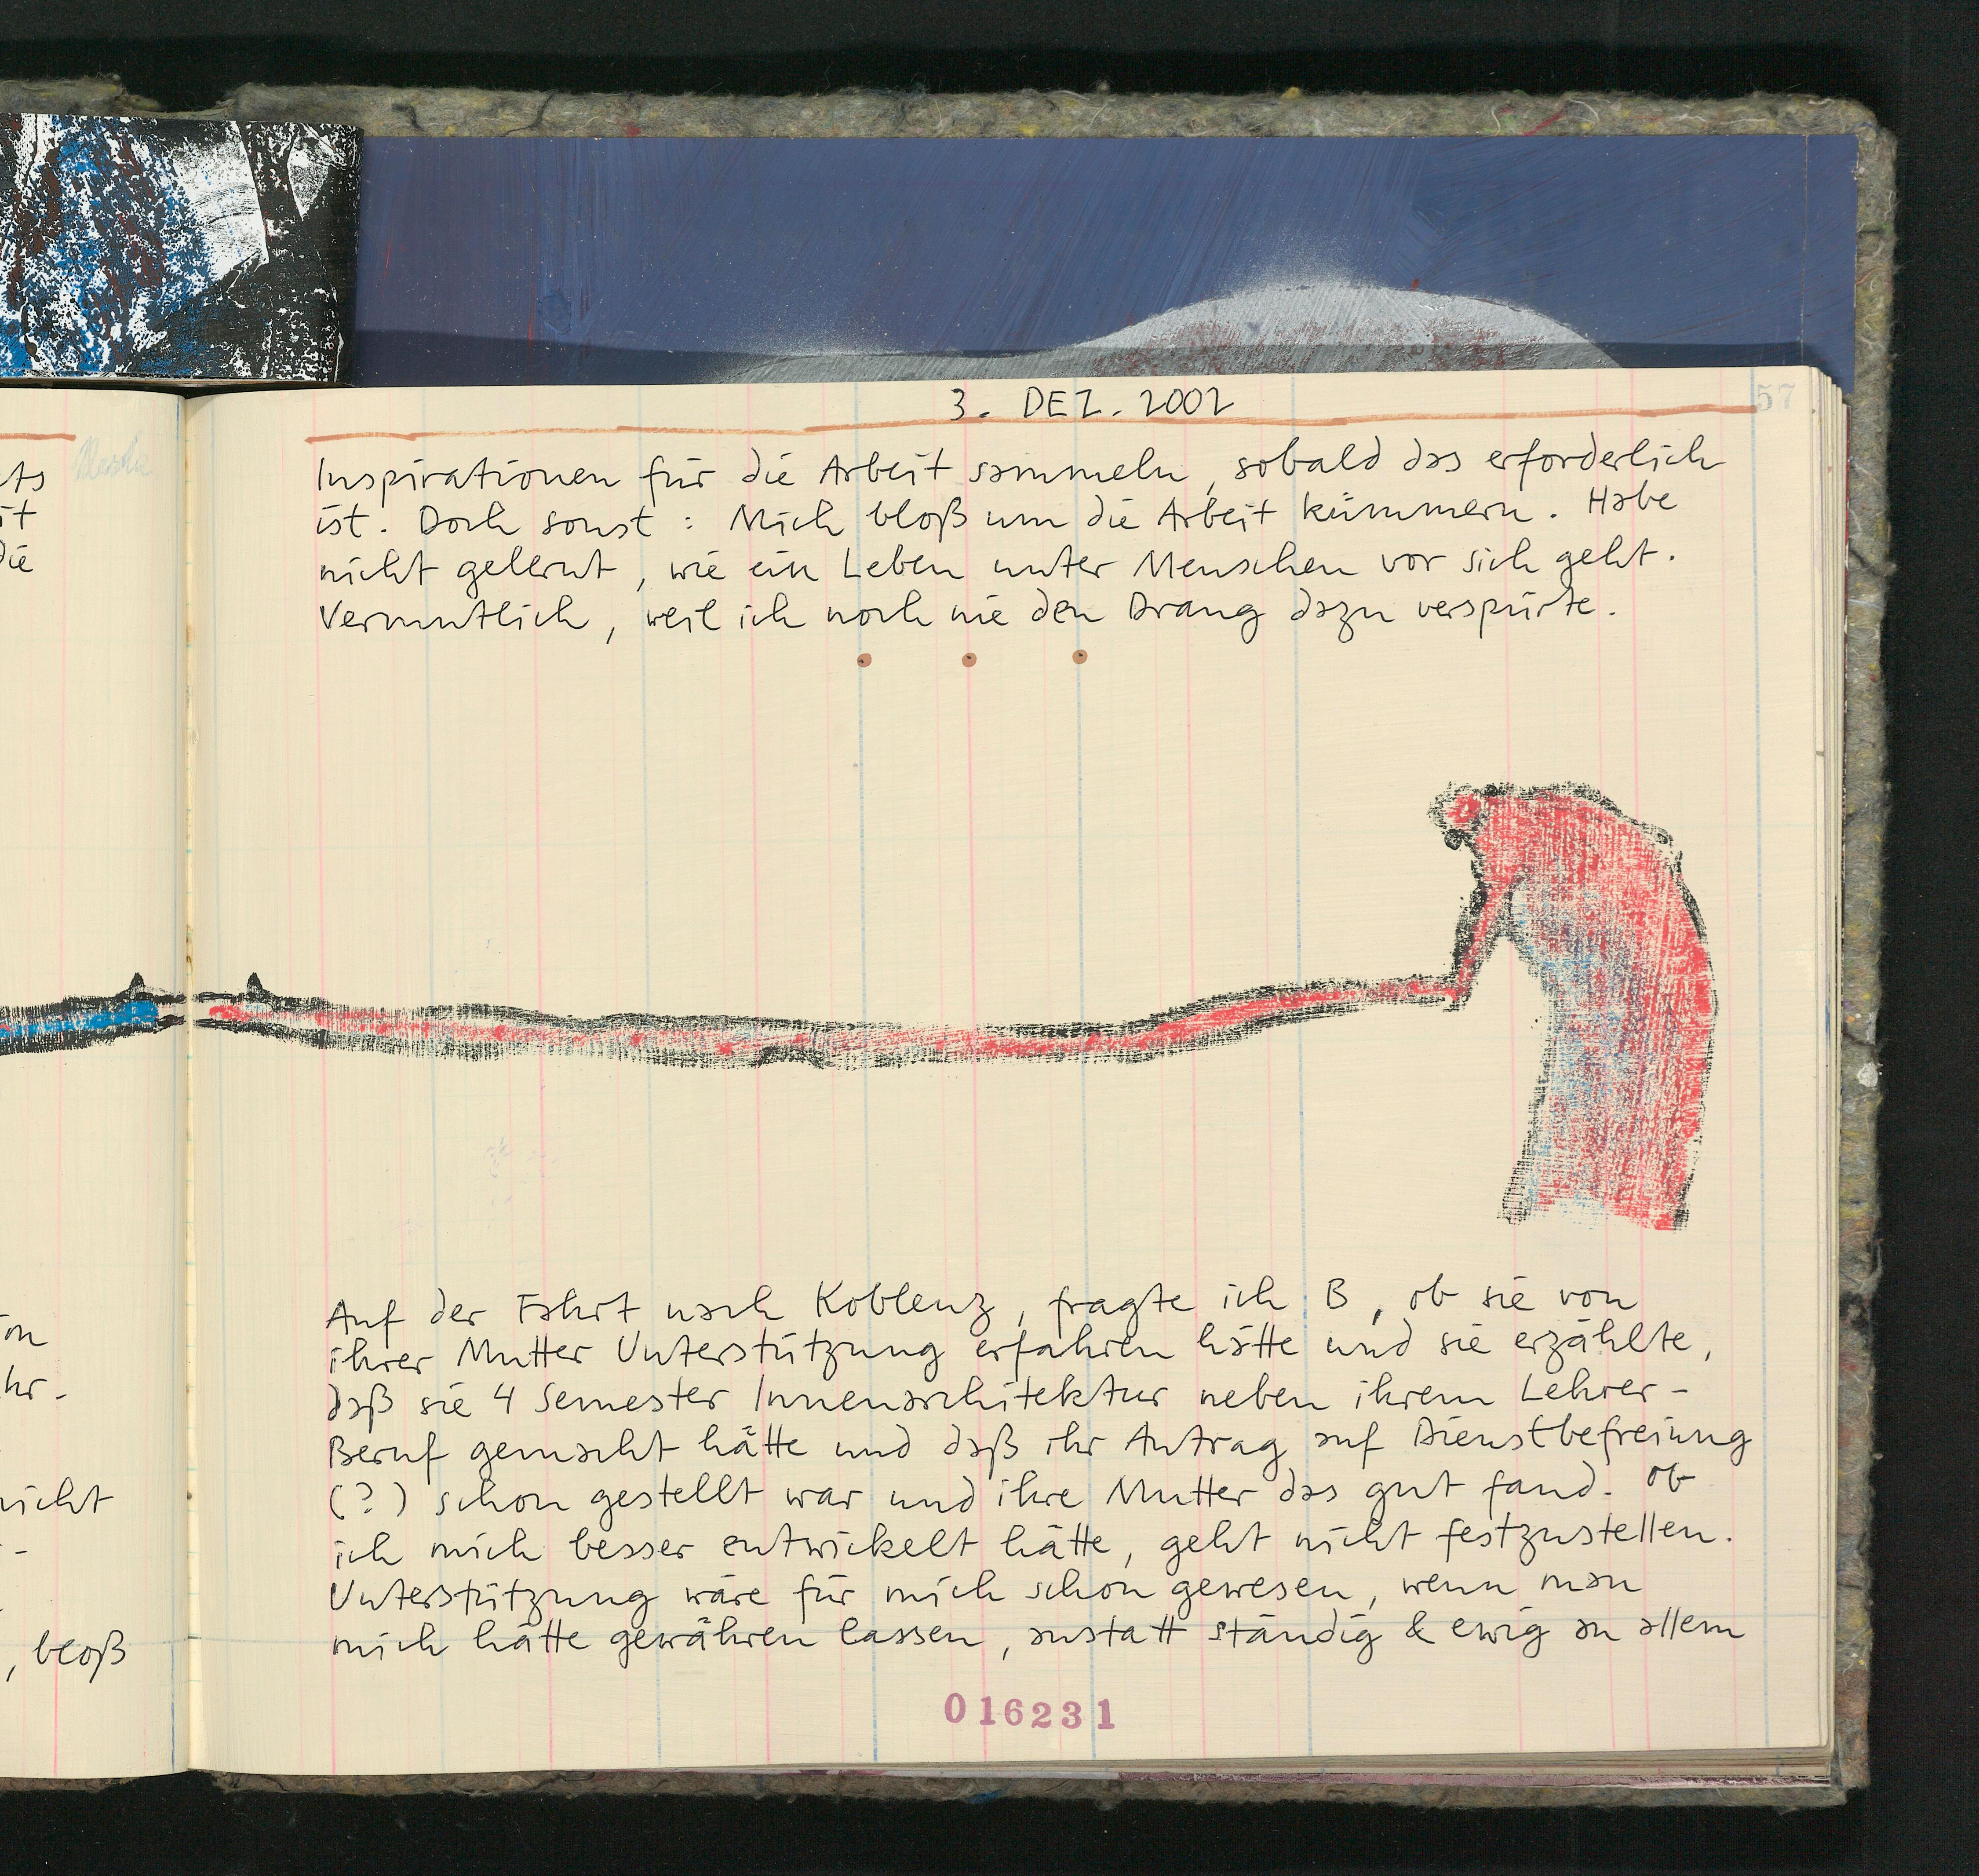 3. DEZ. 2002
57
Inspirationen für die Arbeit sammeln, sobald das erforderlich
ist. Doch sonst: Mich bloß um die Arbeit kümmern. Habe
nicht gelernt, wie ein Leben unter Menschen vor sich geht.
Vermutlich, weil ich noch nie den Drang dazu verspürte.
Auf der Fahrt nach Koblenz, fragte ich B, ob sie von
ihrer Mutter Unterstützung erfahren hätte und sie erzählte,
daß sie 4 Semester Innenarchitektur neben ihrem Lehrer-
Beruf gemacht hätte und daß ihr Antrag auf Dienstbefreiung
(?) schon gestellt war und ihre Mutter das gut fand. Ob
ich mich besser entwickelt hätte, geht nicht festzustellen.
Unterstützung wäre für mich schon gewesen, wenn man
mich hätte gewähren lassen, anstatt ständig & ewig an allem
016231
die
nicht
, bloß